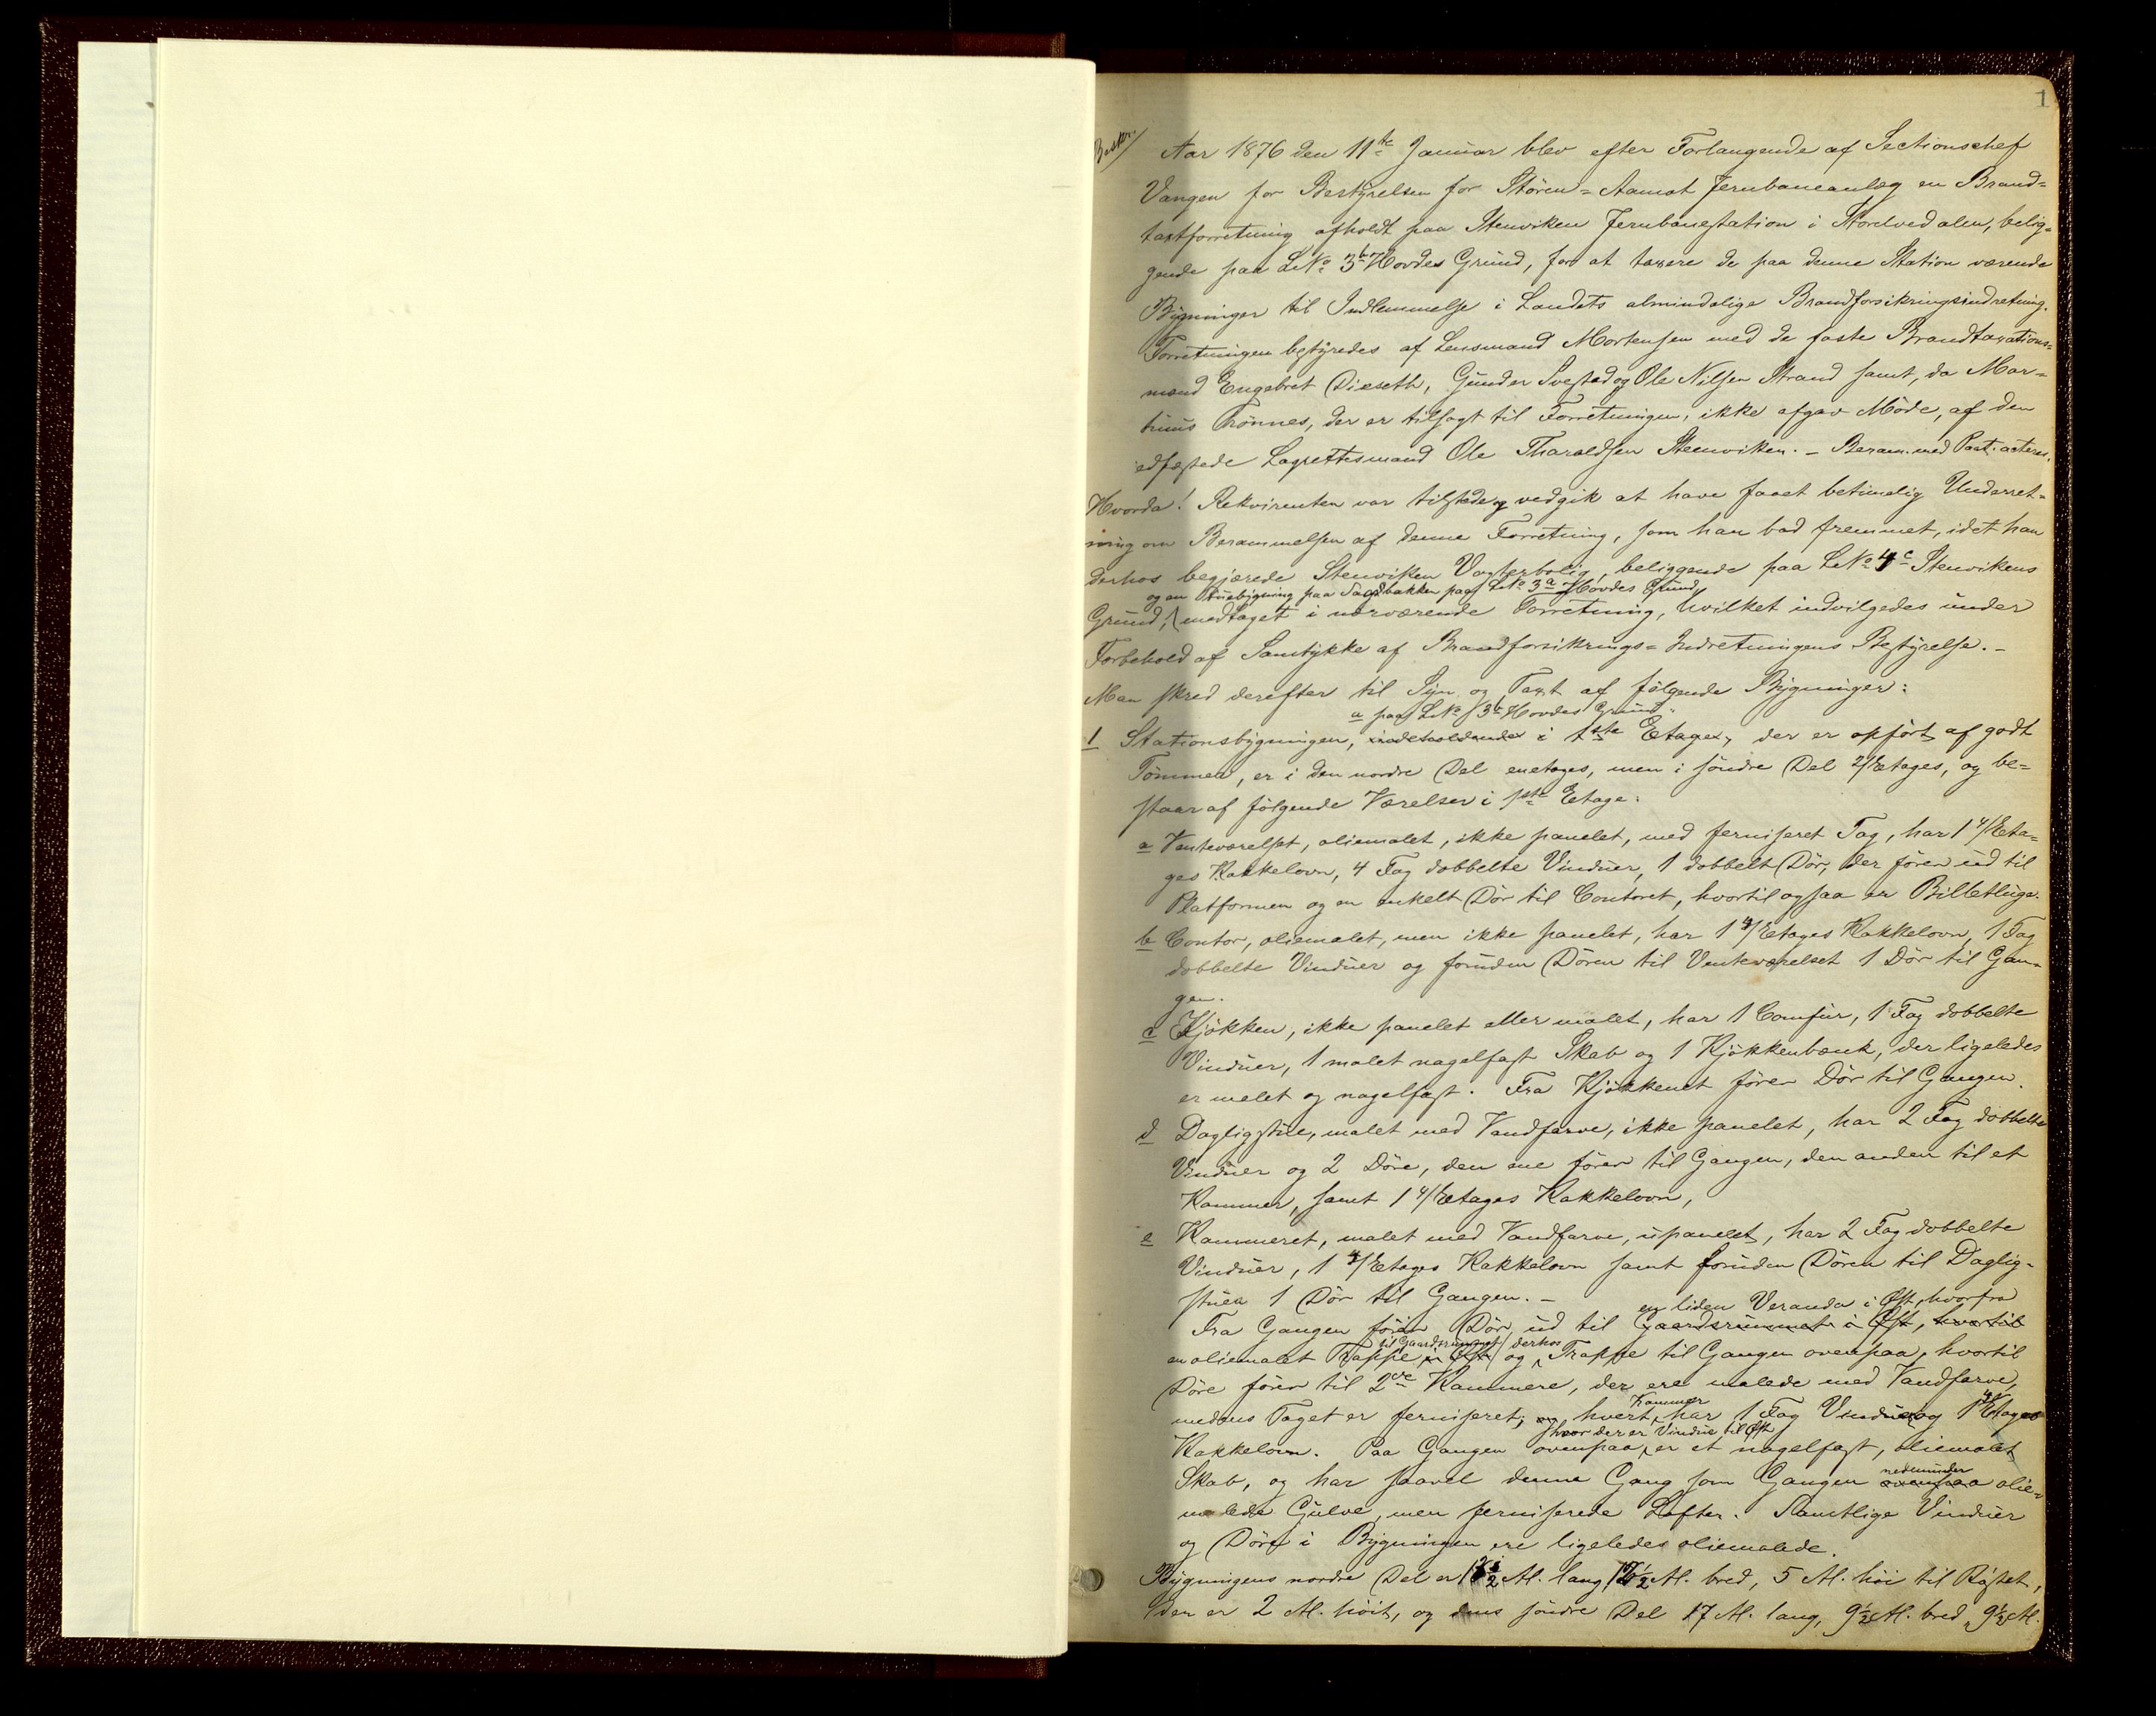 1
Beskr.
Aar 1876 den 11te Januar blev efter Forlangende af Sectionschef
Vangen for Bestyrelsen for Støren=Aamot Jernbaneanlæg en Brand=
taxtforretning afholdt paa Stenviken Jernbanestation i Storelvedalen, belig=
gende paa LNo 3b Hovdes Grund, for at taxere de paa denne Station værende
Bygninger til Indlemmelse i Landets almindelige Brandforsikringsindretning.
Forretningen bestyredes af Lensmand Mortensen med de faste Brandtaxations=
mænd Engebret Dieseth, Gunder Svestad og Ole Nilsen Strand samt, da Mar=
tinus Trønnes, der er tilsagt til Forretningen, ikke afgav Møde, af den
edfæstede Lagrettesmand Ole Tharaldsen Stenviken. – Beram. med Paat. acteres.
Hvorda! Rekvirenten var tilstede og vedgik at have faaet betimelig Underret=
ning om Berammelsen af denne Forretning, som han bad fremmet, idet han
derhos begjærede Stenviken Vogterbolig, beliggende paa LNo 4c Stenvikens
og en Stuebygning paa Sagbakken paa LNo 3a Hovdes Grund
Grund, medtaget i nærværende Forretning, hvilket indvilgedes under
Forbehold af Samtykke af Brandforsikrings=Indretningens Bestyrelse. –
Man skred derefter til Syn og Taxt af følgende Bygninger:
a paa LNo 3b Hovdes Grund:
1 Stationsbygningen, indeholdende i 1ste Etage, der er opført af godt
Tømmer, er i den nordre Del enetages, men i søndre Del 2 Etages, og be=
staar af følgende Værelser i 1ste Etage:
a Venteværelset, oliemalet, ikke panelet, med ferniseret Tag, har 1 4/Eta=
ges Kakkelovn, 4 Fag dobbelte Vinduer, 1 dobbelt Dør, der fører ud til
Platformen og en enkelt Dør til Contoret, hvortil ogsaa er Billetluge.
b Contor, oliemalet, men ikke panelet, har 1 4/Etages Kakkelovn, 1 Fag
dobbelte Vinduer og foruden Døren til Venteværelset 1 Dør til Gan=
gen.
c Kjøkken, ikke panelet eller malet, har 1 Comfur, 1 Fag dobbelte
Vinduer, 1 malet nagelfast Skab og 1 Kjøkkenbænk, der ligeledes
er malet og nagelfast. Fra Kjøkkenet fører Dør til Gangen.
d Dagligstue, malet med Vandfarve, ikke panelet, har 2 Fag dobbelte
Vinduer og 2 Døre, den ene fører til Gangen, den anden til et
Kammer, samt 1 4/Etages Kakkelovn,
e Kammeret, malet med Vandfarve, upanelet, har 2 Fag dobbelte
Vinduer, 1 4/Etages Kakkelovn samt foruden Døren til Daglig=
stuen 1 Dør til Gangen. –
en liden Veranda i Øst, hvorfra
Fra Gangen fører Dør ud til Gaardsrummet i Øst, hvortil
til Gaardsrummet derhos
en oliemalet Trappe i Øst og Trappe til Gangen ovenpaa, hvortil
Døre fører til 2de Kammere, der ere malede med Vandfarve,
Kammer
medens Taget er ferniseret, og hvert har 1 Fag Vinduer og 1 4/Etages
hvor der er Vindue til Øst
Kakkelovn. Paa Gangen ovenpaa er et nagelfast, oliemalet
nedunder
Skab, og har saavel denne Gang som Gangen ovenpaa olie=
malede Gulve, men ferniserede Lofter. Samtlige Vinduer
og Døre i Bygningen ere ligeledes oliemalede.
Bygningens nordre Del er Al. lang, Al. bred, 5 Al. høi til Røstet,
der er 2 Al. høit, og dens søndre Del 17 Al. lang, 9½ Al. bred, 9½ Al.